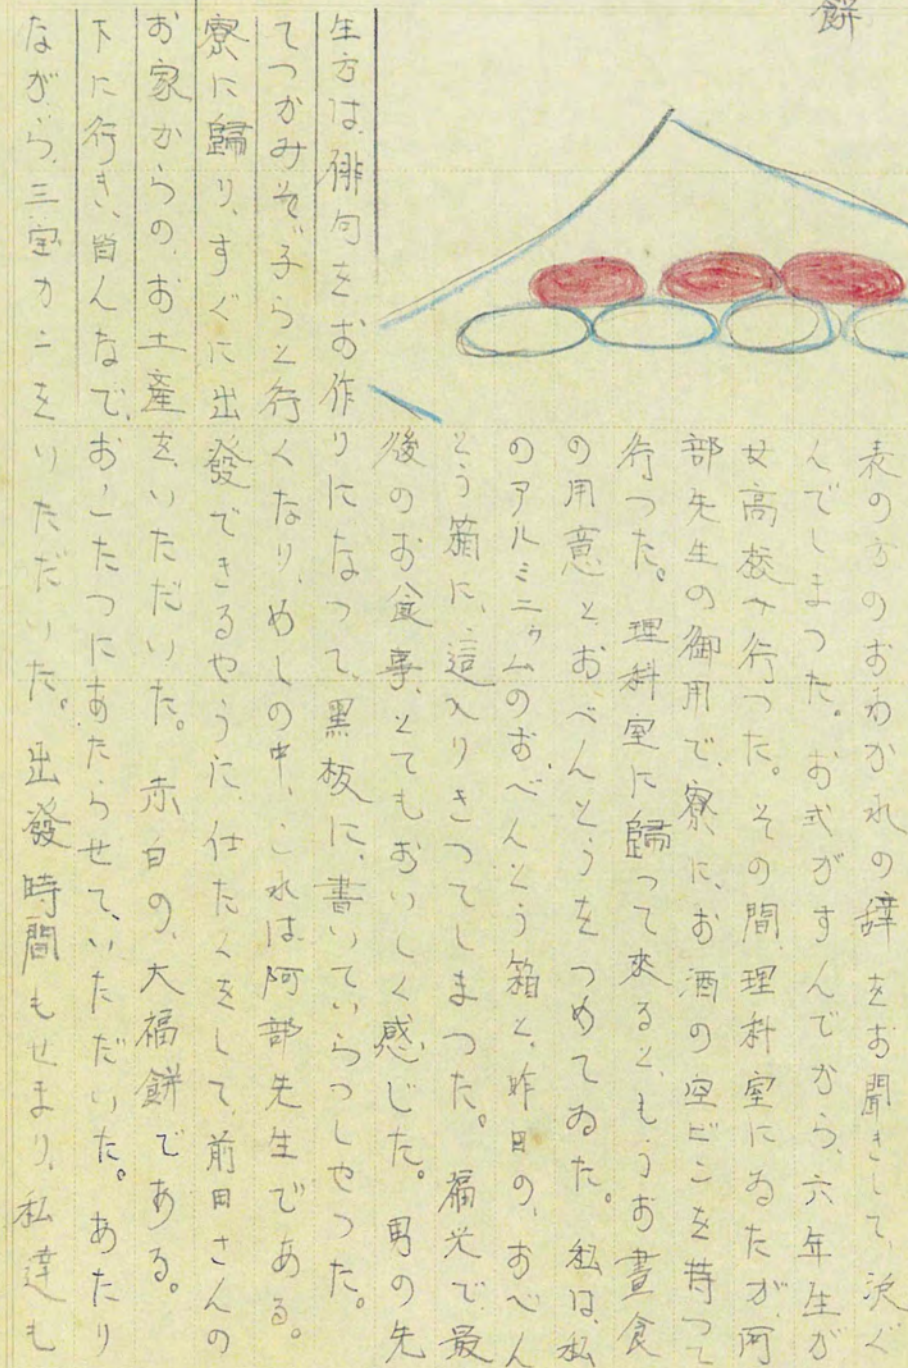 餅
表の方のおわかれの辞をお聞きして、涙ぐ
んでしまつた。お式がすんでから、六年生が
女高校へ行つた。その間、理科室にゐたが、阿
部先生の御用で、寮に、お酒の空ビンを持つて
行つた。理科室に歸って來ると、もうお晝食
の用意とおべんとうをつめてゐた。私は、私
のアルミニゥムのおべんとう箱と、昨日の、おべん
とう箱に、這入りきつてしまつた。福光で、最
後のお食事、とてもおいしく感じた。男の先
生方は、俳句をお作りになつて、黒板に、書いていらつしやつた。
てつかみそ、子らと行くなり、めしの中、これは、阿部先生である。
寮に歸り、すぐに出發できるやうに、仕たくをして、前田さんの
お家からの、お土産を、いただいた。赤白の、大福餅である。
下に行き、皆んなで、おこたつにあたらせて、いただいた。あたり
ながら、三宝カンをいただいた。出發時間もせまり、私達も